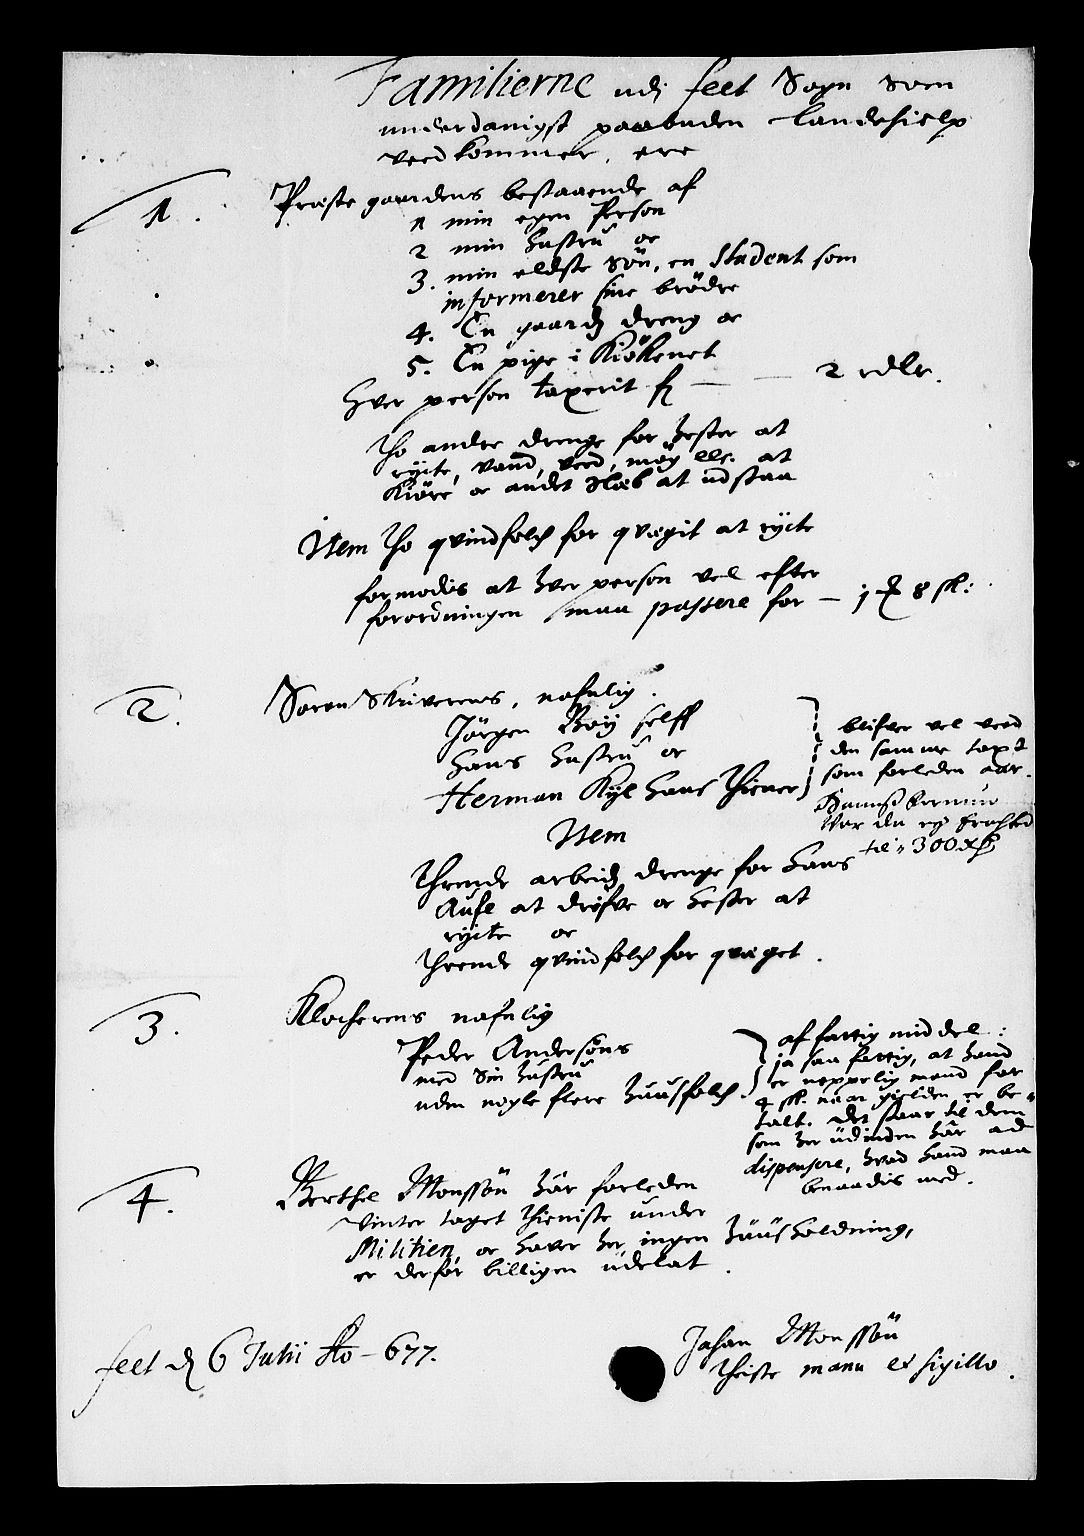 Familierne udj feet Sogn som
underdanigst paabuden landehielp
vedkommer, ere
1. Præstegaardens bestaaende af
1 min egen Person
2 min hustru oc
3. min eldste Søn, en Student som
informerer sine brödre
4. En gaardz dreng oc
5. En pige i Kiökenet
hver person taxerit fz — — 2 rdlr.
Tho andre drenge for hester at
rycte, vand, ved, møg ell. at
Kiöre oc andet slæb at udstaa
Item Tho qvindfolch for qvægit at rycte
formodis at hver person vel efter
forordningen maa passere for — 1 ₰ 8 sk:
2. Soren Skriverens, nafnlig
Jörgen Boÿ selff
hans hustru oc
Herman Kÿl hans Thiener
Item
Thrende arbeidz drenge for hans
Aufl at drifve oc hester at
rycte oc
Thrende qvindfolch for qvæget.
blifver vel ved
den samme taxt
som forleden aar.
var da
til 300
3. Klockerens nafnlig
Peder Andersöns
med sin hustru
uden nogle flere huusfolch.
af fattig middel:
ja saa fattig, at hand
er neppelig mand for
4 sk. naar gielden er be-
talt. Det staar til dem
som her udinden har ad
dispensere, hvad hand maa
benaadis med.
4. Berthel Monssön har forleden
vinter taget thieniste under
Militien, oc haver her ingen huusholdning,
er derfor billigen udelat.
feet d 6 Julii Ao - 677.
Johan Monssön
Theiste manu et sigillo.